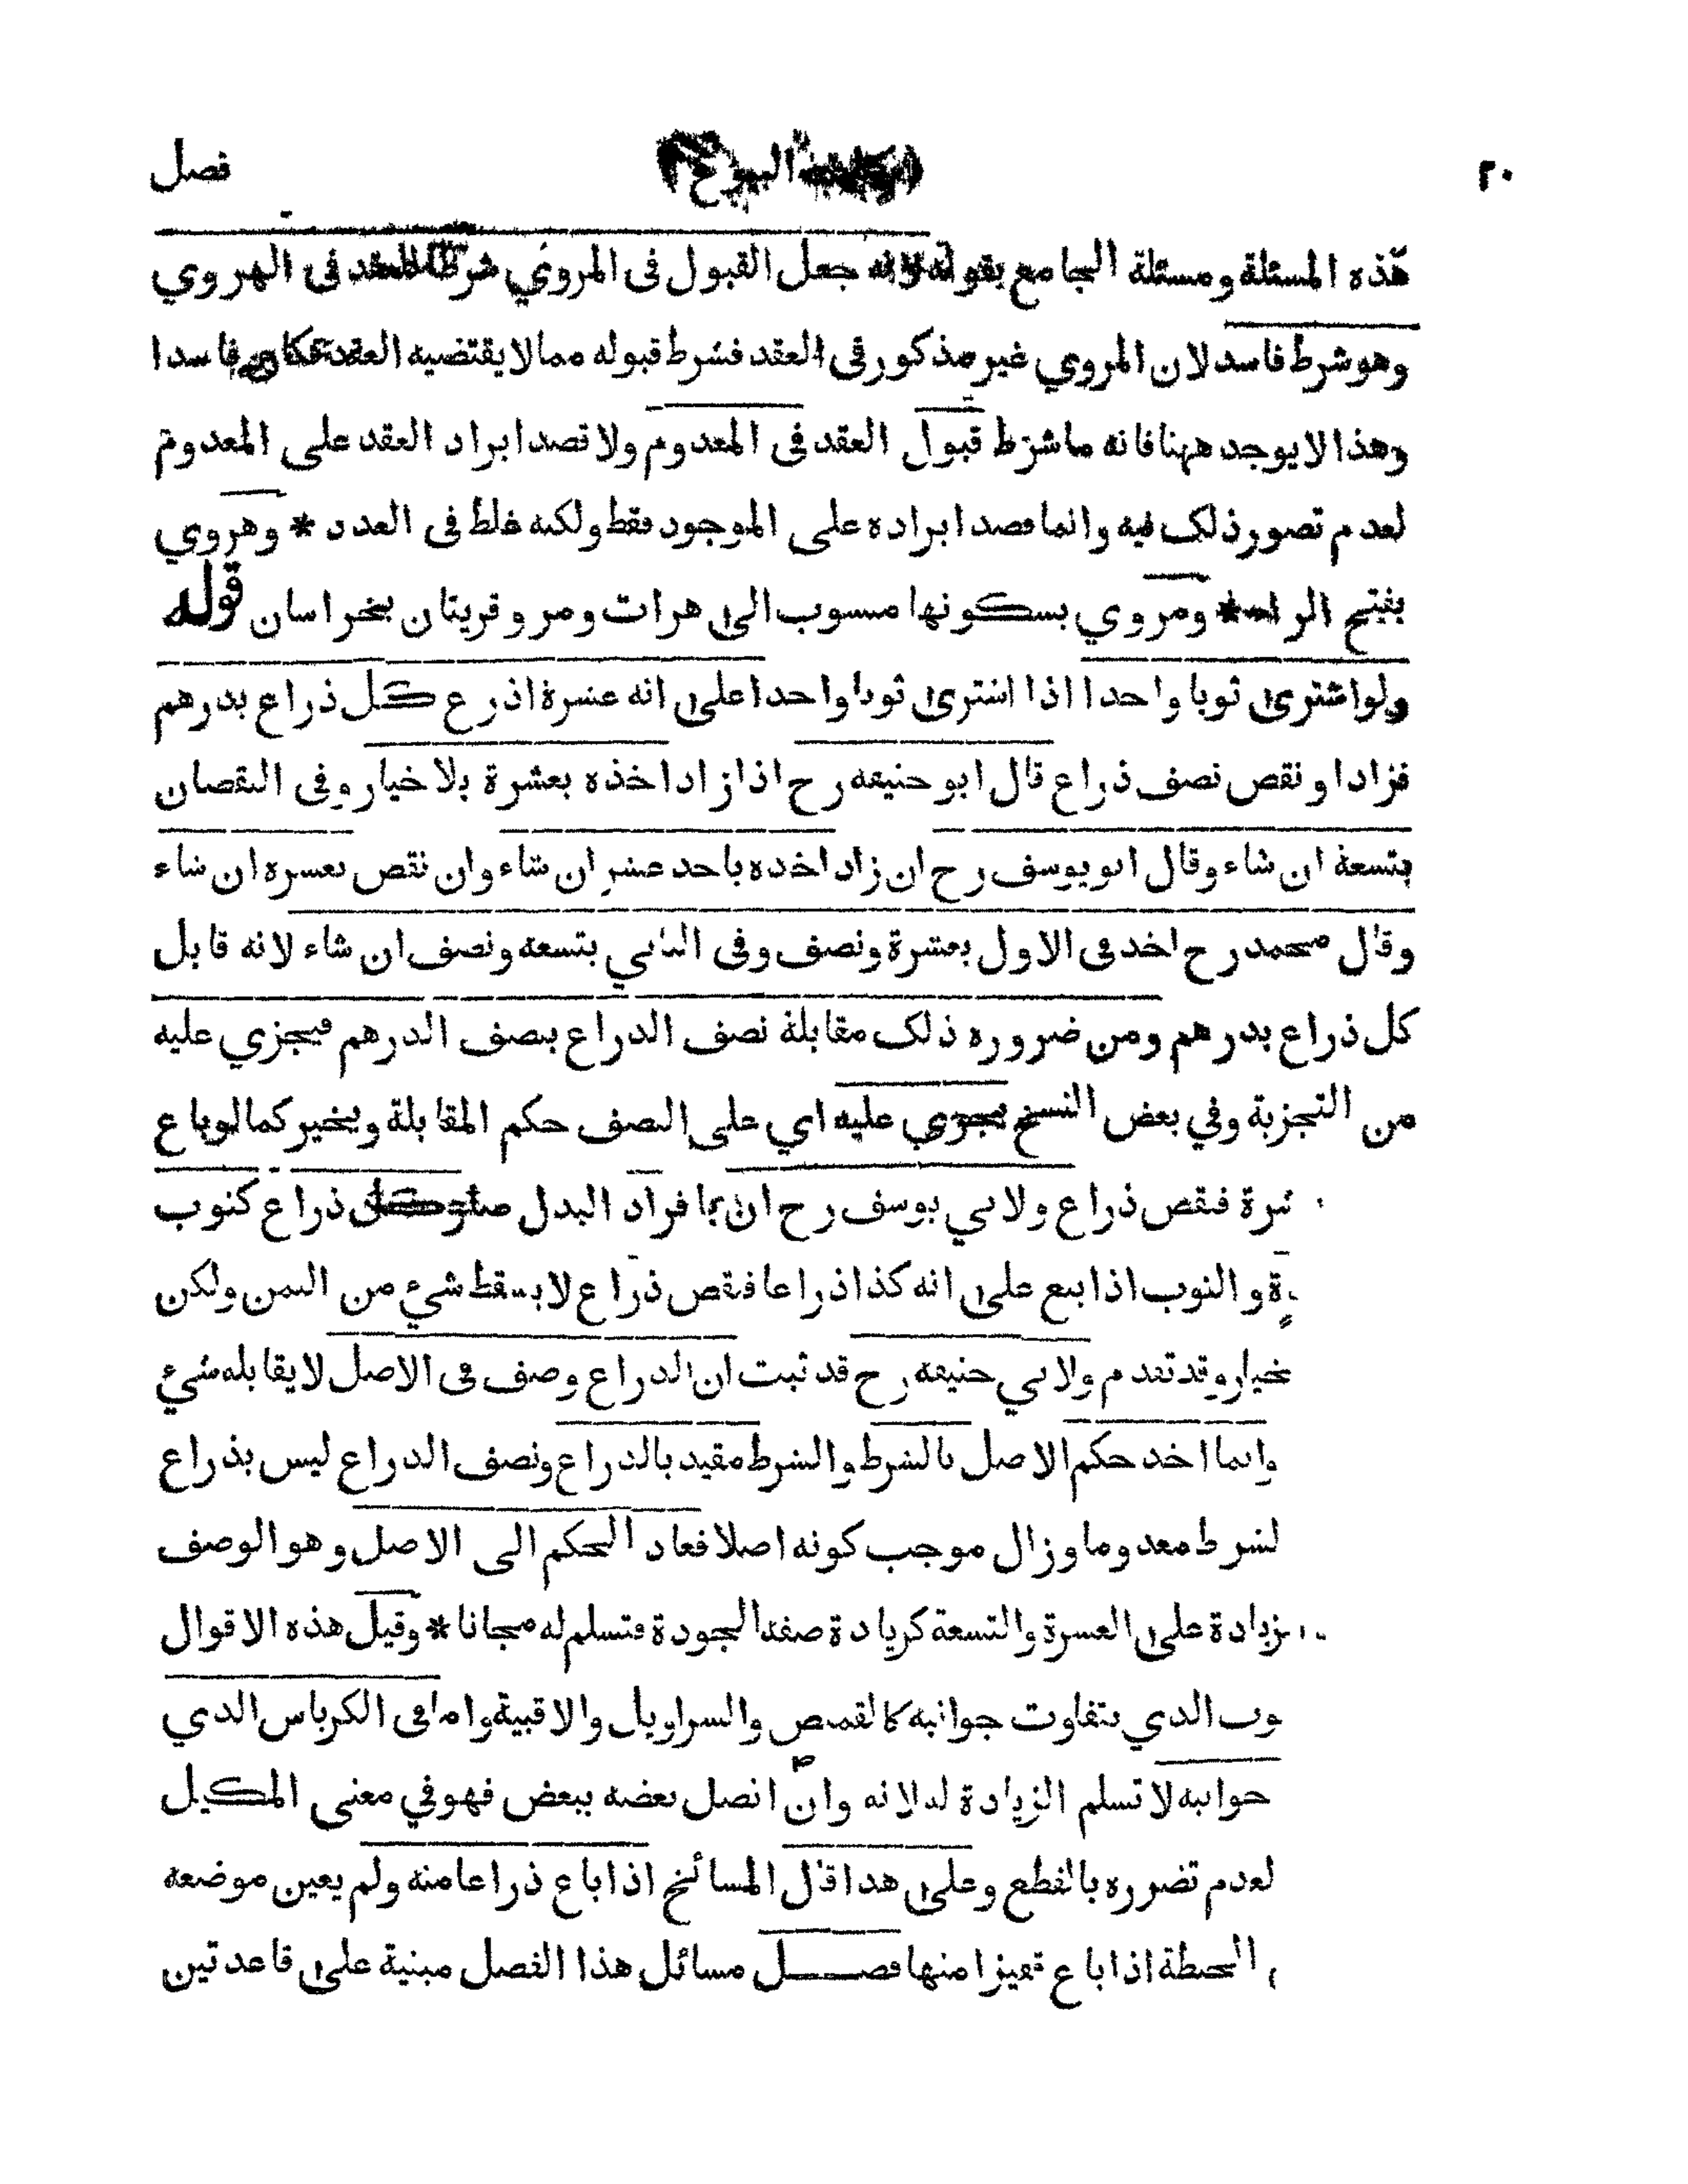 ٢٠ البيوع فصل
هذه المسئلة ومسئلة الجامع بقوله لانه جعل القبول فى المروي شرطا فى الهروي
وهو شرط فاسد لان المروي غير مذكور فى العقد فشرط قبوله مما لا يقتضيه العقد فاسدا
وهذا لا يوجد ههنا فانه ما شرط قبول العقد فى المعدوم ولا قصد ايراد العقد على المعدوم
لعدم تصور ذلك فيه وانما قصد ايراده على الموجود فقط ولكنه غلط فى العدد * وهروي
بفتح الراء * ومروي بسكونها منسوب الى هرات ومرو قريتان بخراسان قوله
ولو اشترى ثوبا واحدا اذا اشترى ثوبا واحدا على انه عشرة اذرع كل ذراع بدرهم
فزاد او نقص نصف ذراع قال ابو حنيفه رح اذا زاد اخذه بعشرة بلا خيار وفى النقصان
بتسعة ان شاء وقال ابو يوسف رح ان زاد اخذه باحد عشر ان شاء وان نقص بعشره ان شاء
وقال محمد رح اخذ فى الاول بعشرة ونصف وفى الثاني بتسعه ونصف ان شاء لانه قابل
كل ذراع بدرهم ومن ضروره ذلك مقابلة نصف الذراع بنصف الدرهم فيجزي عليه
من التجزية وفي بعض النسخ يجري عليه اي على النصف حكم المقابلة ويخير كما لو باع
فنقص ذراع ولابي يوسف رح ان بافراد البدل صار كل ذراع كثوب
والثوب اذا بيع على انه كذا ذراعا فنقص ذراع لا يسقط شيء من الثمن ولكن
خيار وقد تقدم ولابي حنيفه رح قد ثبت ان الذراع وصف فى الاصل لا يقابله شيء
وانما اخذ حكم الاصل بالشرط والشرط مقيد بالذراع ونصف الذراع ليس بذراع
لشرط معدوما وزال موجب كونه اصلا فعاد الحكم الى الاصل وهو الوصف
زيادة على العشرة والتسعة كزيادة صفة الجودة فتسلم له مجانا * وقيل هذه الاقوال
وب الذي يتفاوت جوانبه كالقميص والسراويل والاقبية واما فى الكرباس الذي
جوانبه لا تسلم الزيادة له لانه وان اتصل بعضه ببعض فهو في معنى المكيل
لعدم تضرره بالقطع وعلى هذا قال المشائخ اذا باع ذراعا منه ولم يعين موضعه
الحنطة اذا باع قفيزا منها فصل مسائل هذا الفصل مبنية على قاعدتين